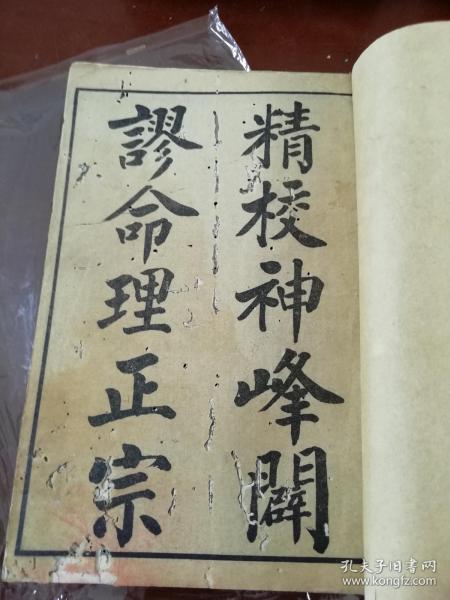 精校神峰闢
謬命理正宗
孔夫子旧书网
www.kongfz.com